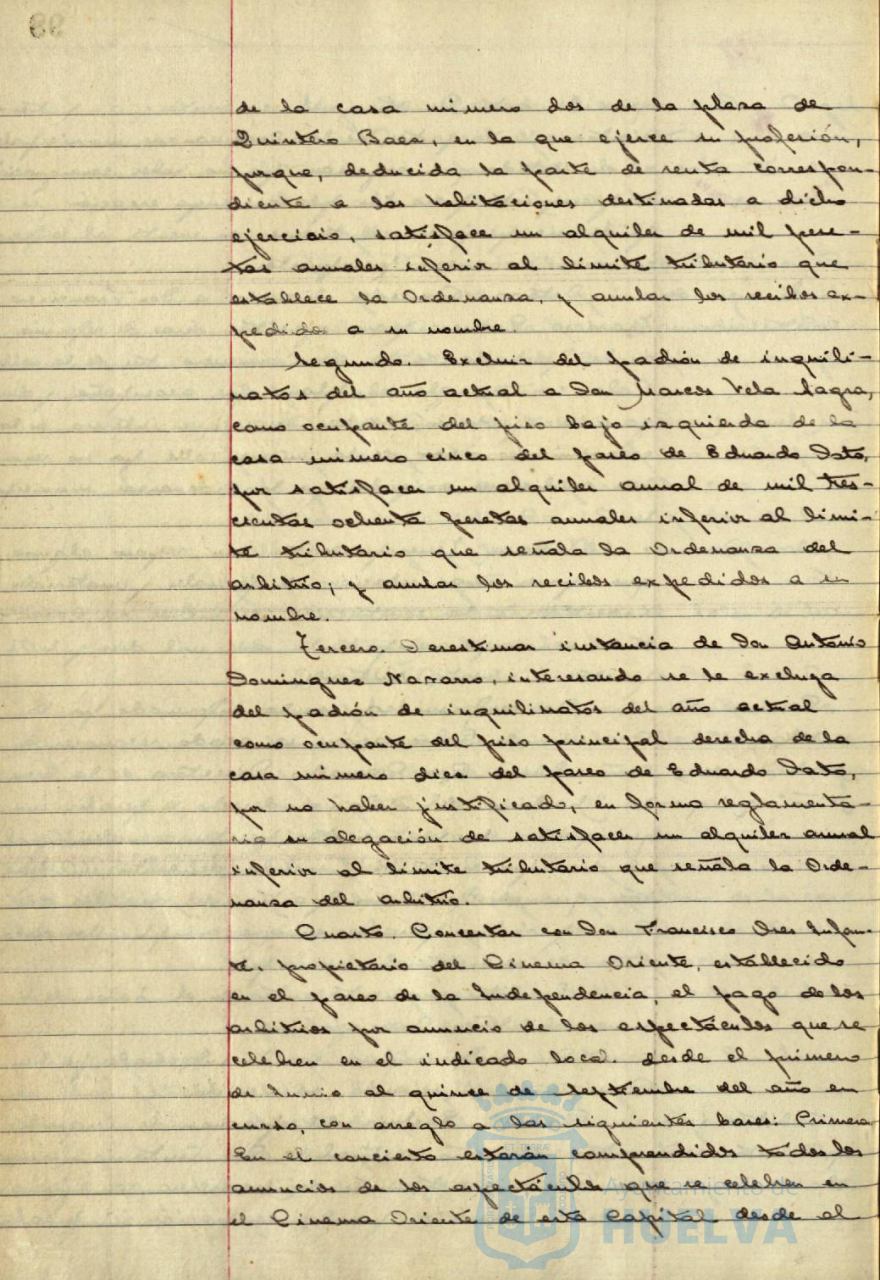 de la casa número dos de la plaza de
Quintero Baez, en la que ejerce su profesión,
porque, deducida la parte de renta correspon-
diente a las habitaciones destinadas a dicho
ejercicio, satisface un alquiler de mil pese-
tas anuales inferior al límite tributario que
establece la Ordenanza, y anular los recibos ex-
pedidos a su nombre.
Segundo. Excluir del padrón de inquili-
natos del año actual a Don Marcos Vela Sagra,
como ocupante del piso bajo izquierda de la
casa número cinco del paseo de Eduardo Dato,
por satisfacer un alquiler anual de mil tres-
cientas ochenta pesetas anuales inferior al lími-
te tributario que señala la Ordenanza del
arbitrio; y anular los recibos expedidos a su
nombre.
Tercero. Desestimar instancia de Don Antonio
Dominguez Navarro, interesando se le excluya
del padrón de inquilinatos del año actual
como ocupante del piso principal derecha de la
casa número diez del paseo de Eduardo Dato,
por no haber justificado, en forma reglamenta-
ria su alegación de satisfacer un alquiler anual
inferior al límite tributario que señala la Orde-
nanza del arbitrio.
Cuarto. Concertar con Don Francisco
te, propietario del Cinema Oriente, establecido
en el paseo de la Independencia, el pago de los
arbitrios por anuncio de los espectáculos que se
celebren en el indicado local desde el primero
de Junio al quince de Septiembre del año en
curso, con arreglo a las siguientes bases: Primera
En el concierto estarán comprendidos todos los
anuncios de los espectáculos que se celebren en
el Cinema Oriente de esta Capital desde el
Ayuntamiento de
HUELVA